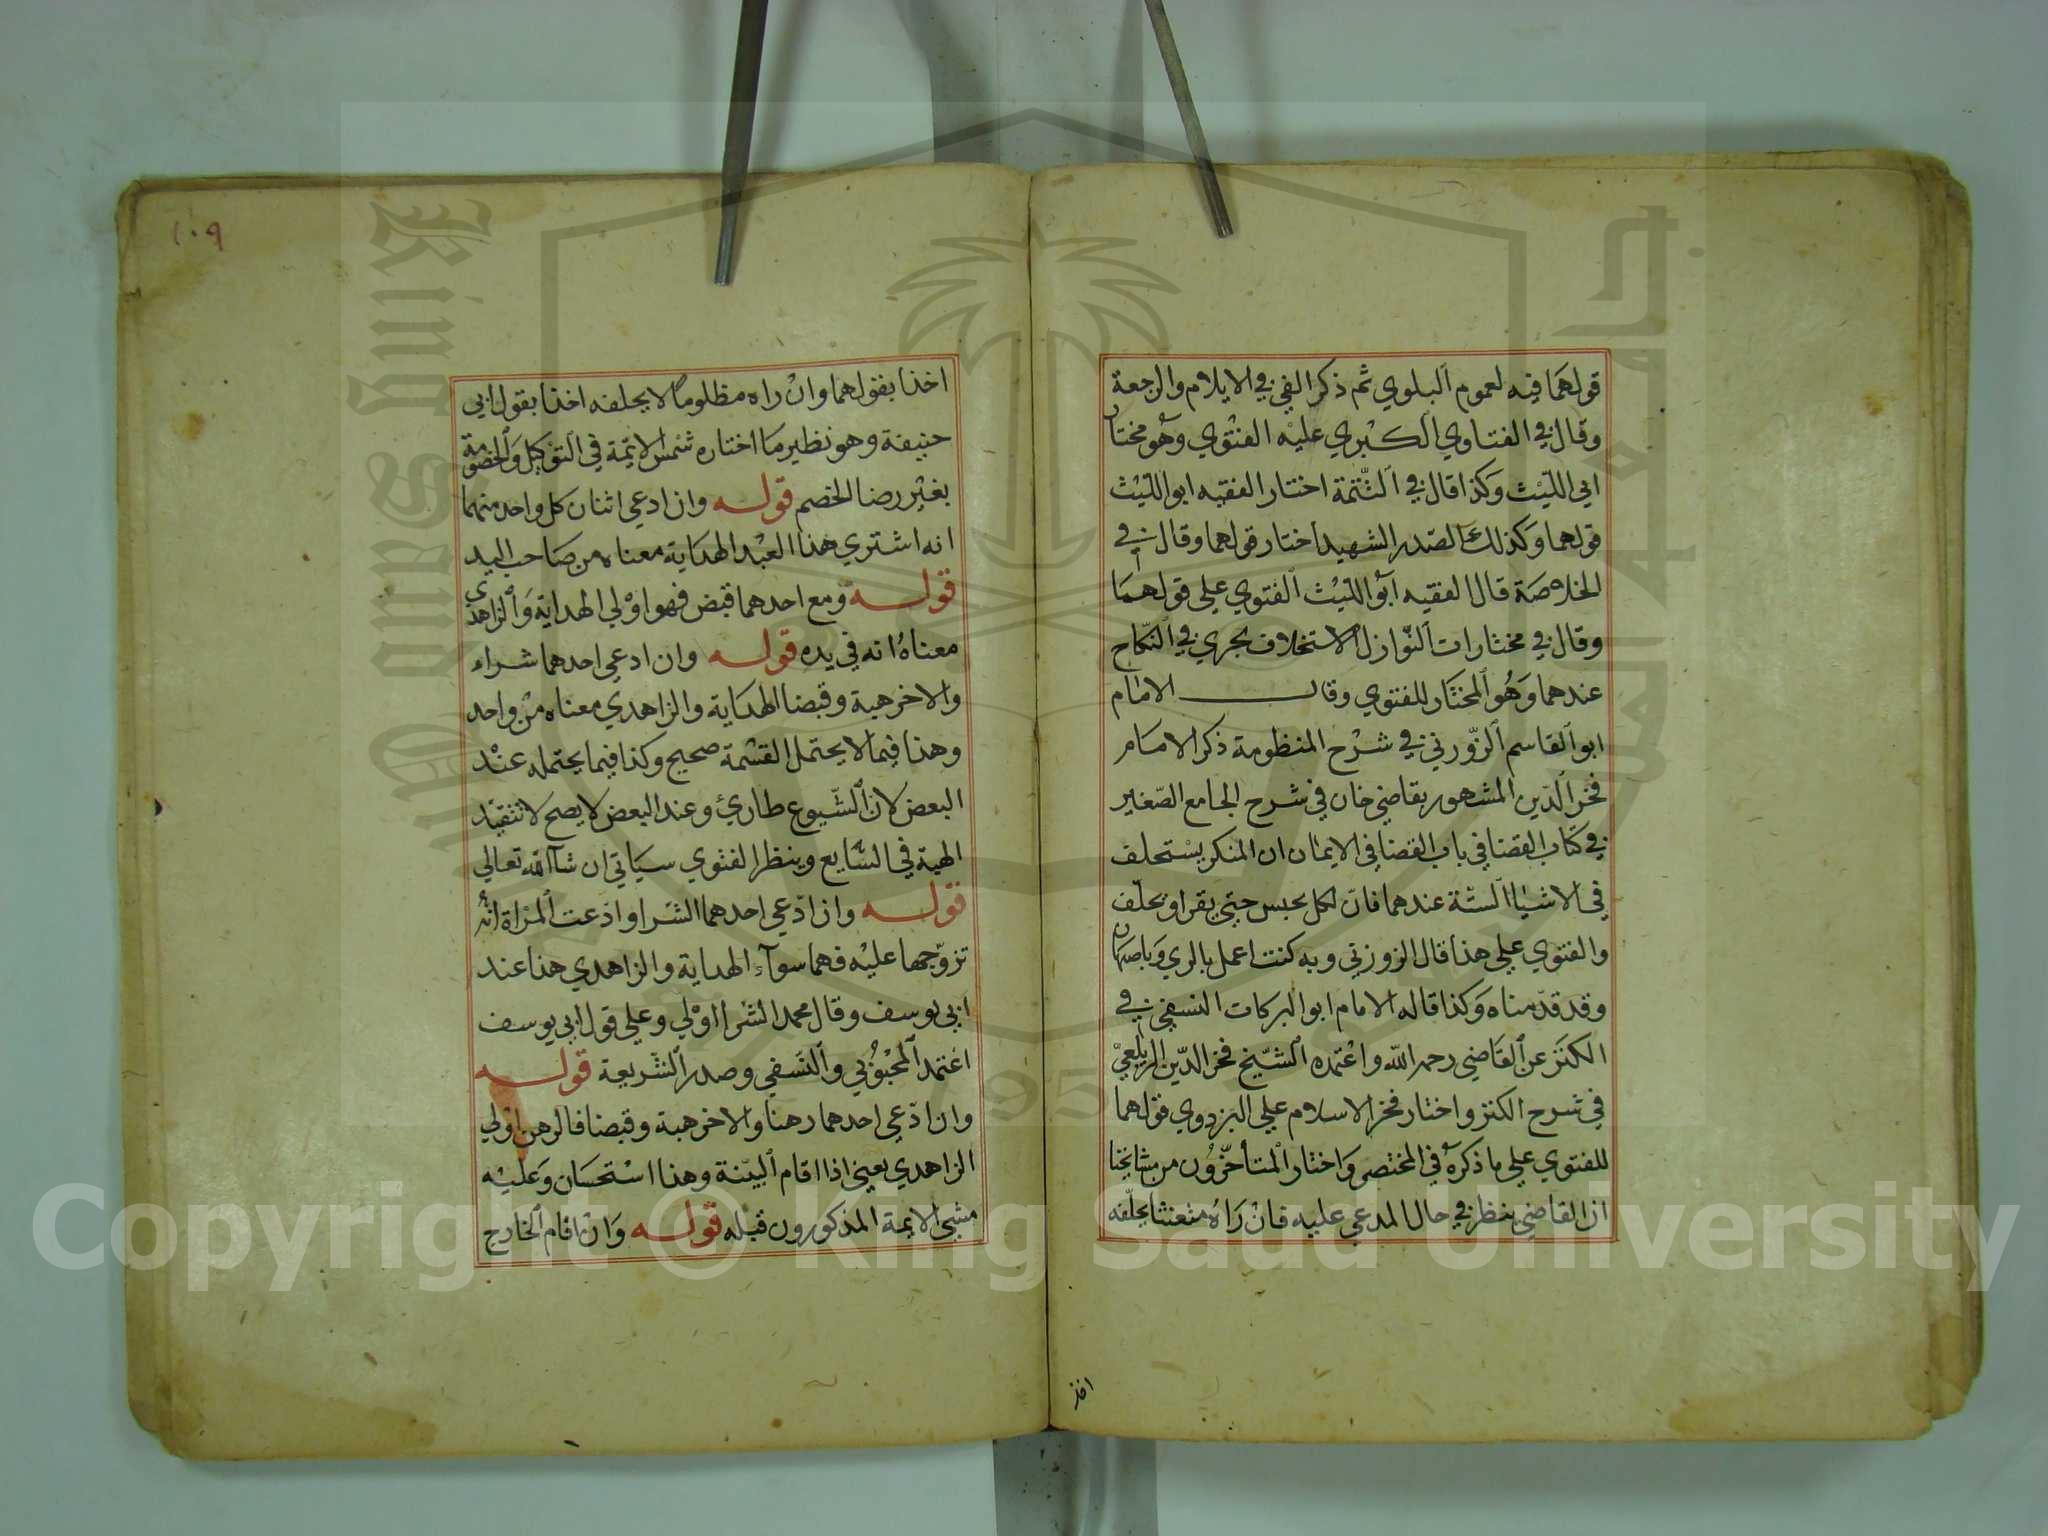 قولهما فيه لعموم البلوي ثم ذكر الفي في الايلام والرجعة
وقال في الفتاوي الكبري عليه الفتوي وهو مختار
ابي الليث وكذا قال في التتمة اختار الفقيه ابو الليث
قولهما وكذلك الصدر الشهيد اختار قولهما وقال في
الخلاصة قال الفقيه ابو الليث الفتوي علي قولهما
وقال في مختارات النوازل الاستخلاف يجري في النكاح
عندهما وهو المختار للفتوي وقال الامام
ابو القاسم الزوزني في شرح المنظومة ذكر الامام
فخر الدين المشهور بقاضي خان في شرح الجامع الصغير
في كتاب القضا في باب القضا في الايمان ان المنكر يستحلف
في الاشيا الستة عندهما فان نكل يحبس حتي يقر او يحلف
والفتوي علي هذا قال الزوزني وبه كنت اعمل بالري وباصبهان
وقد قدمناه وكذا قاله الامام ابو البركات النسفي في
الكنز عن القاضي رحمه الله واعتمده الشيخ فخر الدين الزيلعي
في شرح الكنز واختار فخر الاسلام علي البزدوي قولهما
للفتوي علي ما ذكره في المختصر واختار المتأخرون من مشايخنا
ان القاضي ينظر في حال المدعي عليه فان راه متعنتا يحلفه
اخذ
١٠٩
اخذا بقولهما وان راه مظلوما لا يحلفه اخذا بقول ابي
حنيفة وهو نظير ما اختاره شمس الائمة في التوكيل والخصومة
بغير رضا الخصم قوله وان ادعي اثنان كل واحد منهما
انه اشتري هذا العبد الهداية معناه من صاحب اليد
قوله ومع احدهما قبض فهو اولي الهداية والزاهدي
معناه انه في يده قوله وان ادعي احدهما شراء
والاخر هبة وقبضا الهداية والزاهدي معناه من واحد
وهذا فيما لا يحتمل القسمة صحيح وكذا فيما يحتمله عند
البعض لان الشيوع طارئ وعند البعض لا يصح لا تنفيذ
الهبة في الشايع وينظر الفتوي سياتي ان شاالله تعالي
قوله وان ادعي احدهما الشرا وادعت المراة انه
تزوجها عليه فهما سوآء الهداية والزاهدي هذا عند
ابي يوسف وقال محمد الشرا اولي وعلي قول ابي يوسف
اعتمد المحبوبي والنسفي وصدر الشريعة قوله
وان ادعي احدهما رهنا والاخر هبة وقبضا فالرهن اولي
الزاهدي يعني اذا اقام البينة وهذا استحسان وعليه
مشي الايمة المذكورون قبله قوله وان اقام الخارج
Copyright © King Saud University
King Saud University